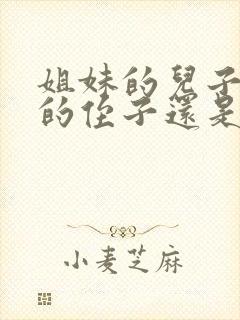 姐妹的兒子
的侄子還是
小麦芝麻